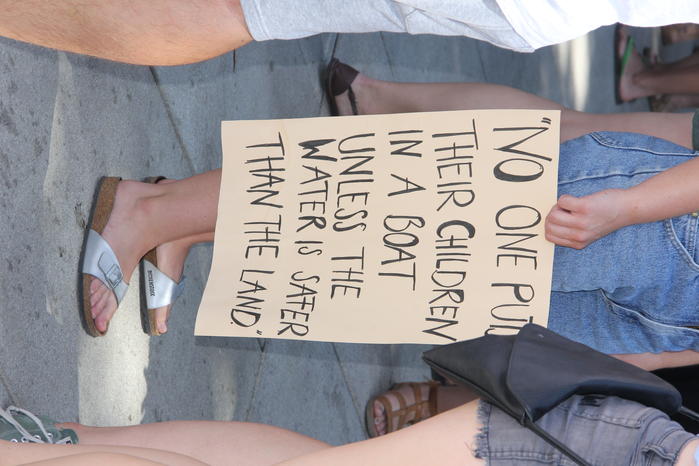 "NO ONE PUTS
THEIR CHILDREN
IN A BOAT
UNLESS THE
WATER IS SAFER
THAN THE LAND."
BIRKENSTOCK